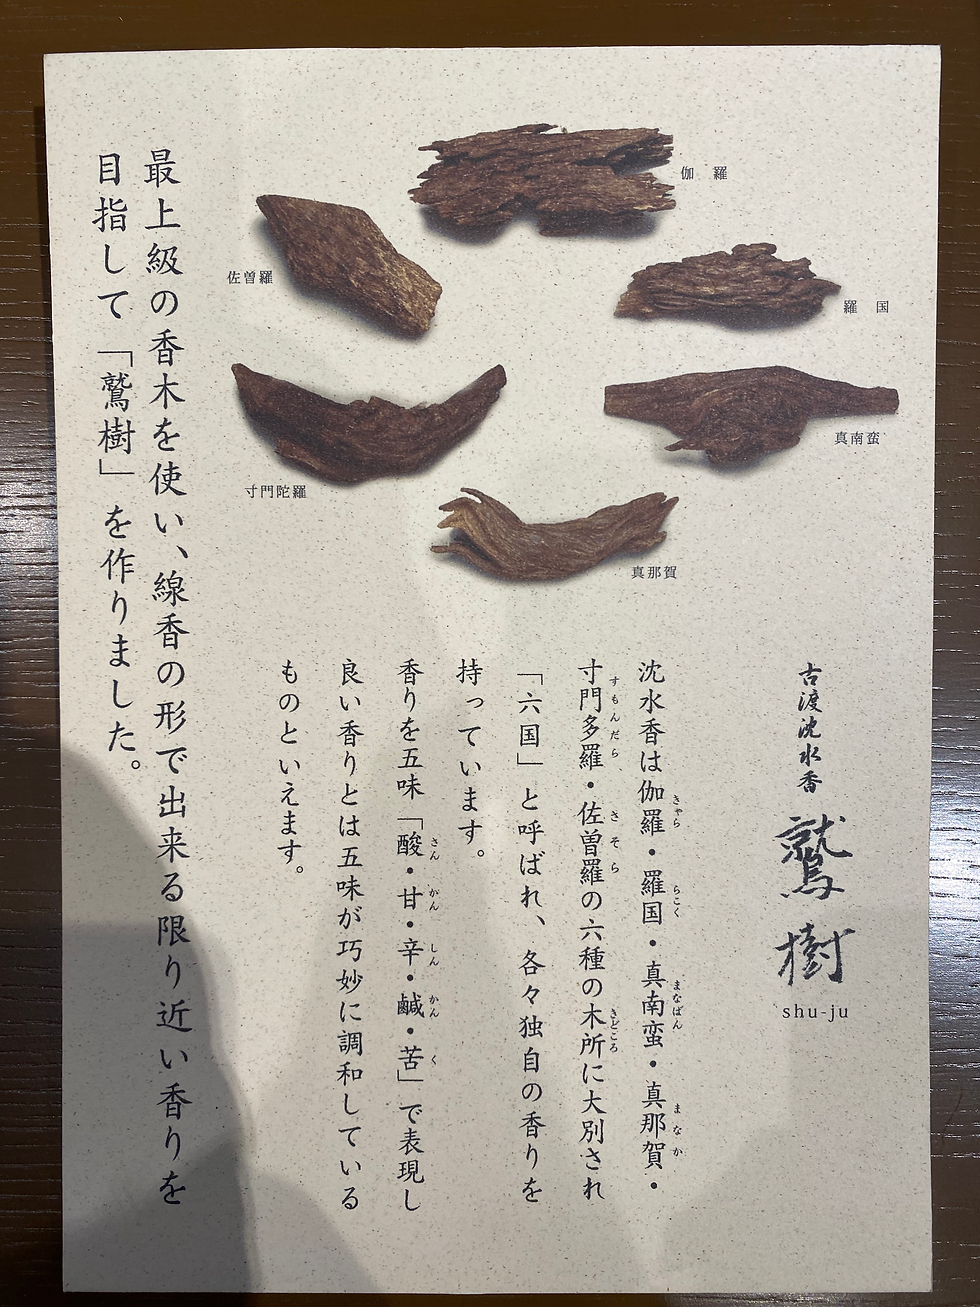 伽羅
佐曽羅
羅国
真南蛮
寸門陀羅
真那賀
古渡沈水香
鷲樹
shu-ju
沈水香は伽羅・羅国・真南蛮・真那賀・
きゃら らこく まなばん まなか
寸門多羅・佐曽羅の六種の木所に大別され
すもんだら さそら きどころ
「六国」と呼ばれ、各々独自の香りを
持っています。
香りを五味「酸・甘・辛・鹹・苦」で表現し
さん かん しん かん く
良い香りとは五味が巧妙に調和している
ものといえます。
最上級の香木を使い、線香の形で出来る限り近い香りを
目指して「鷲樹」を作りました。